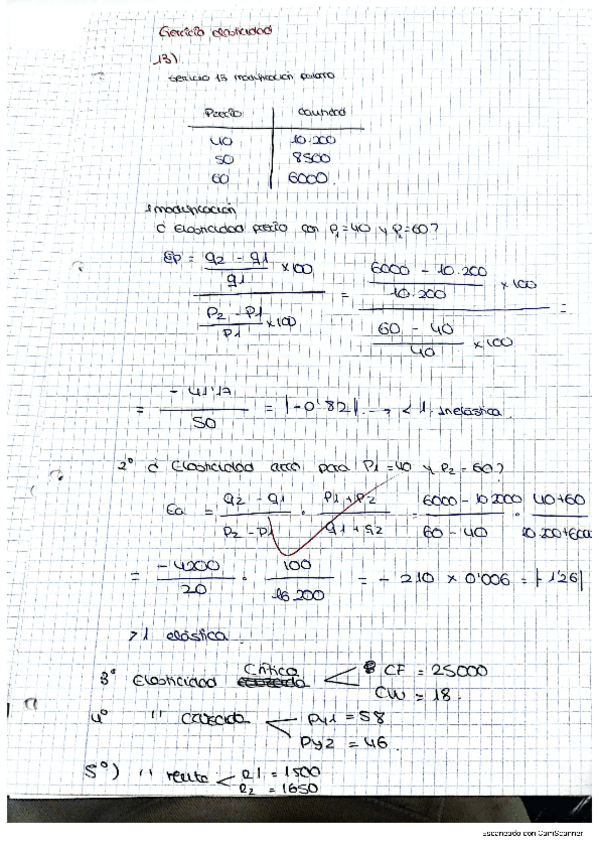 Ejercicio elasticidad
13)
Ejercicio 13 modificación
Precio Cantidad
40 10.200
50 8500
60 6000
1 modificación
¿ Elasticidad precio con P1 = 40 y P2 = 60?
Ep = q2 - q1 / q1 × 100 / P2 - P1 / P1 × 100 = 6000 - 10.200 / 10.200 × 100 / 60 - 40 / 40 × 100 =
= - 41'17 / 50 = |-0'82| → < 1. Inelástica.
2º ¿ Elasticidad arco para P1 = 40 y P2 = 60?
Ea = q2 - q1 / P2 - P1 · P1 + P2 / q1 + q2 = 6000 - 10.2000 / 60 - 40 · 40+60 / 10.200+6000
= - 4200 / 20 · 100 / 16.200 = - 210 × 0'006 = |-1'26|
> 1 elástica.
3º Elasticidad Crítica CF = 25000
CW = 18.
4º '' cruzada Py1 = 58
Py2 = 46.
5º) '' renta R1 = 1500
R2 = 1650
Escaneado con CamScanner